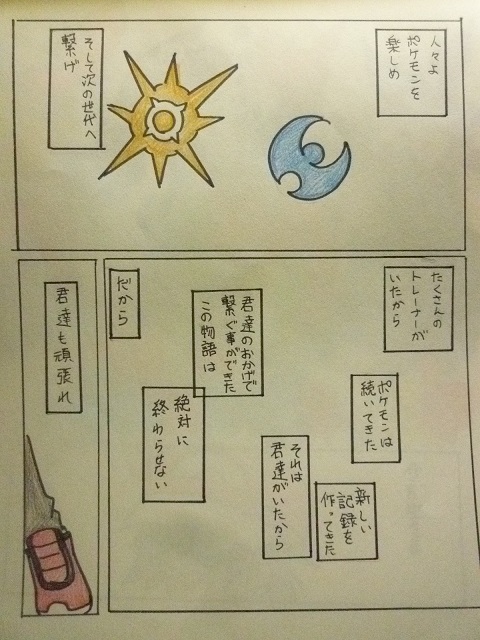 人々よ
ポケモンを
楽しめ
そして次の世代へ
繋げ
たくさんの
トレーナーが
いたから
ポケモンは
続いてきた
新しい
記録を
作ってきた
それは
君達がいたから
君達のおかげで
繋ぐ事ができた
この物語は
絶対に
終わらせない
だから
君達も頑張れ